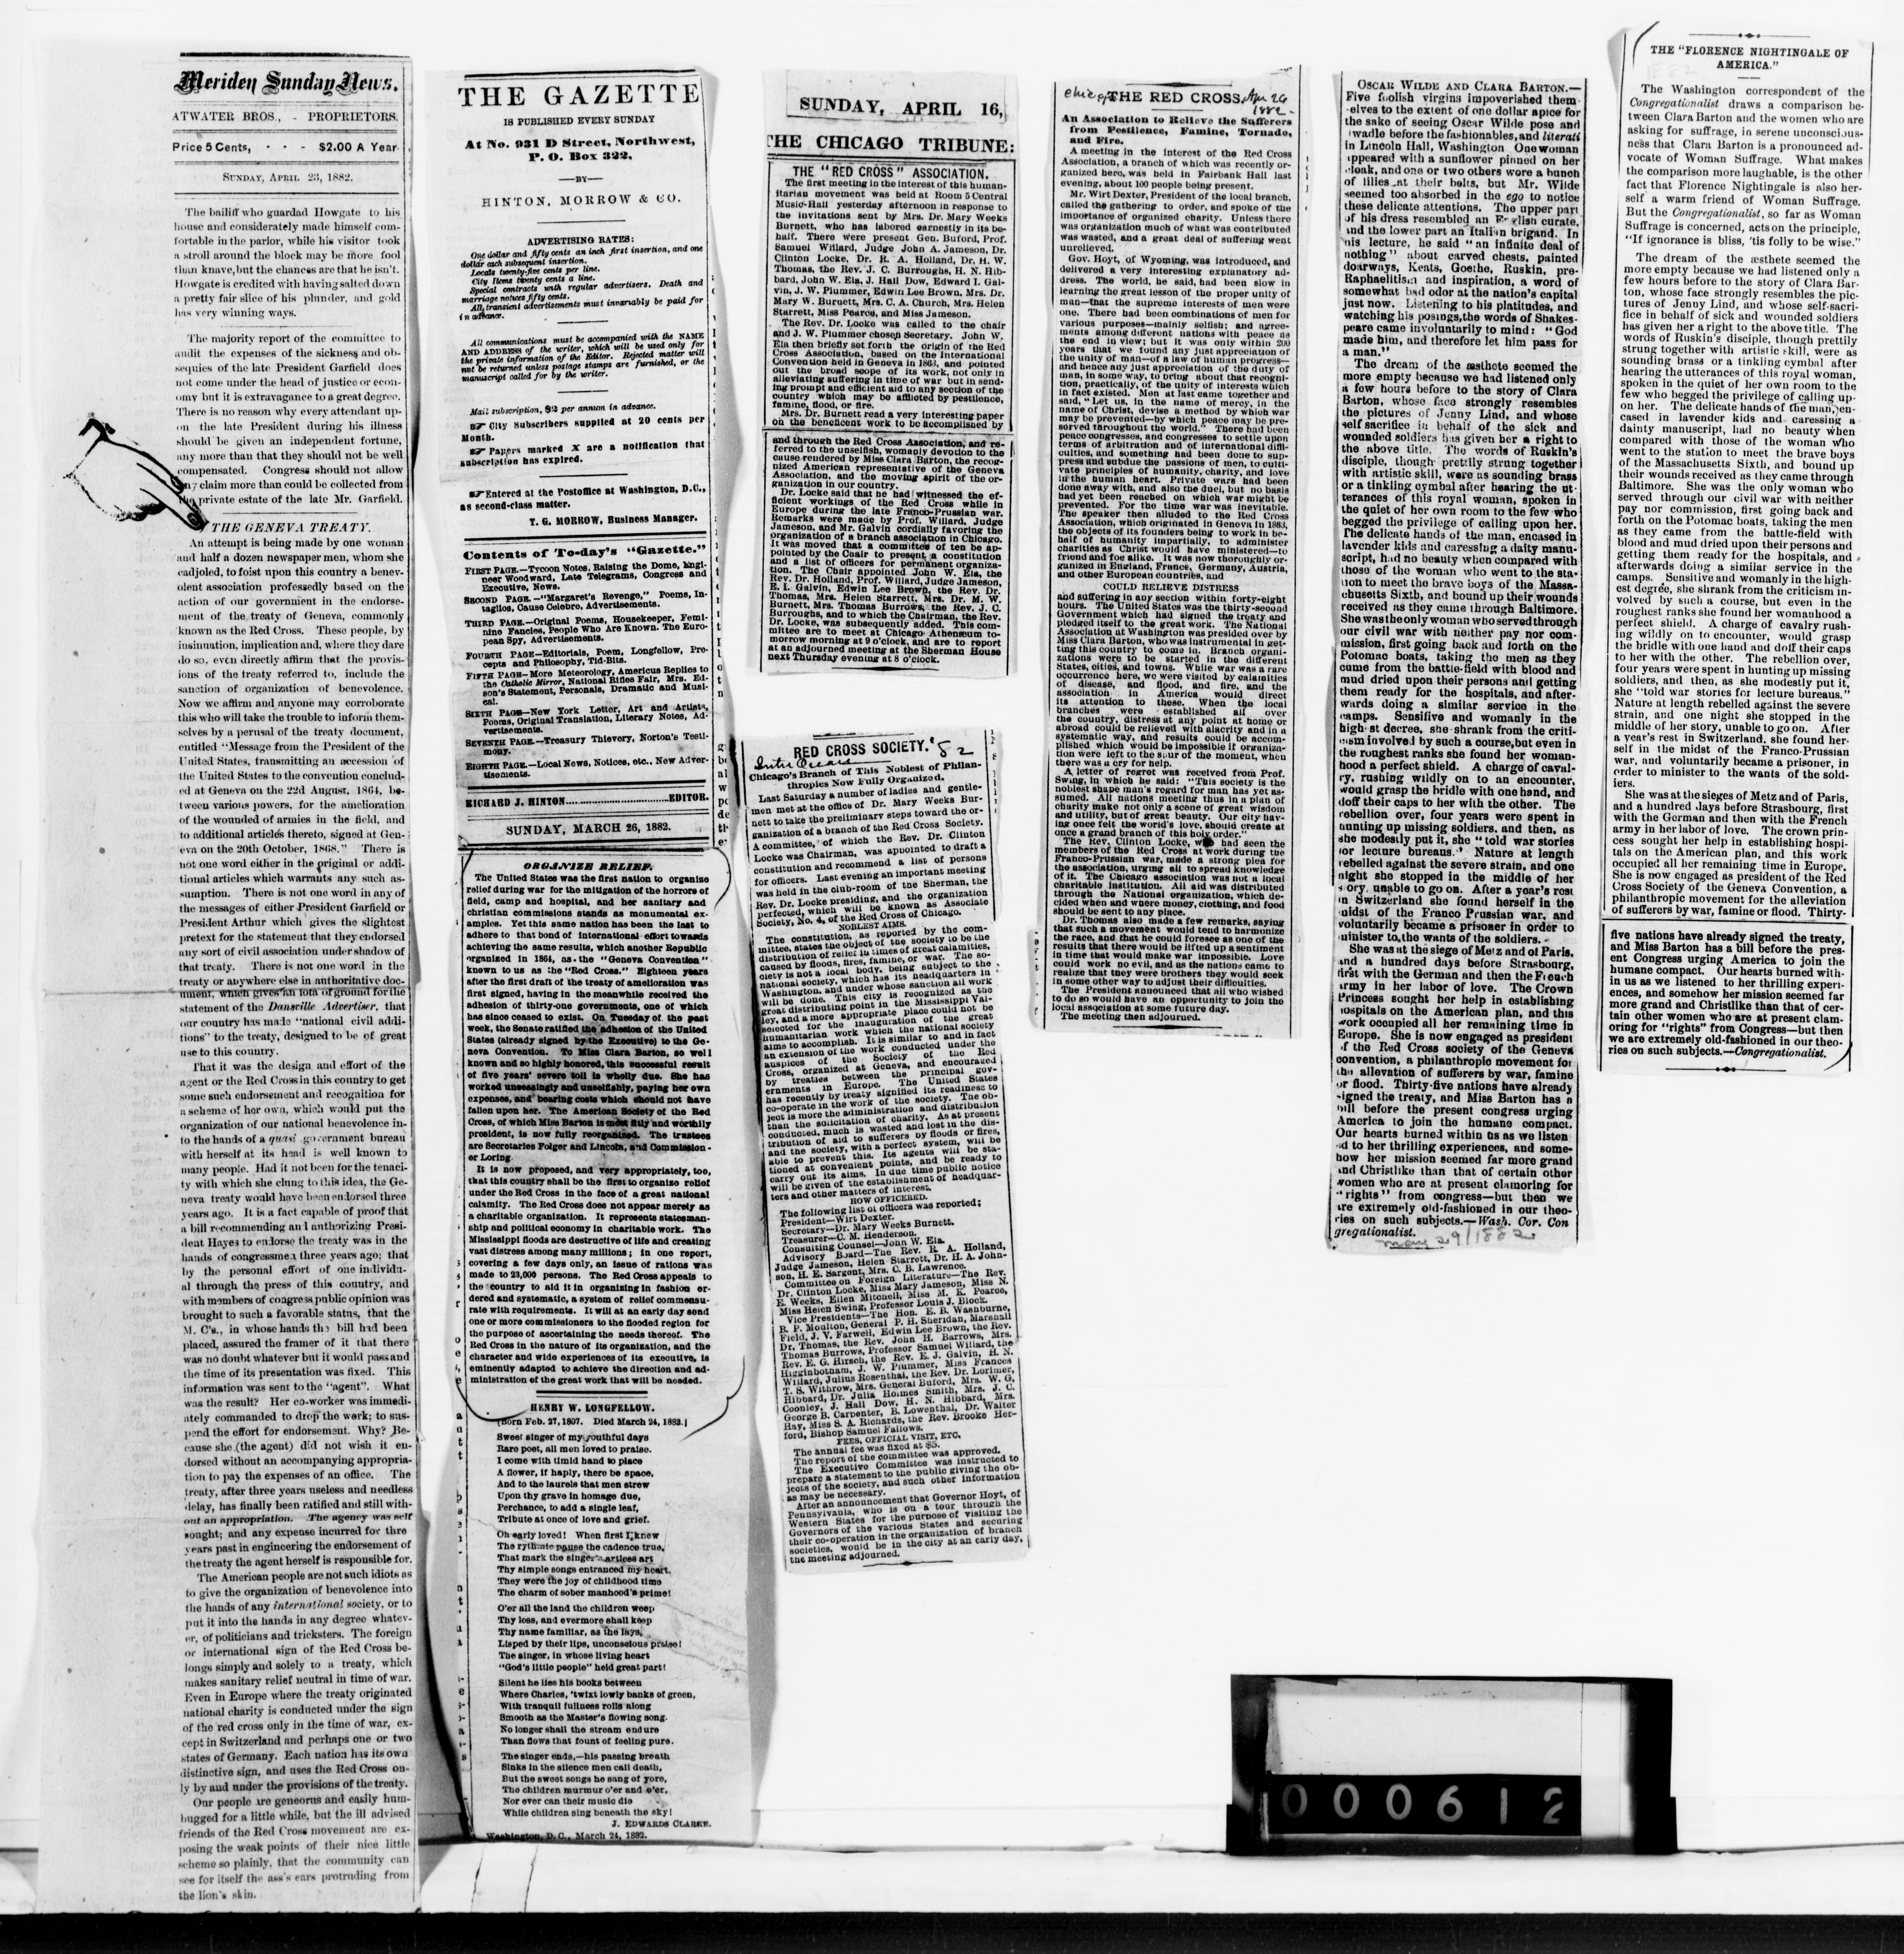 Meriden Sunday News.
ATWATER BROS., - PROPRIETORS.
Price 5 Cents, - - - $2.00 A Year
SUNDAY, APRIL 23, 1882.
The bailiff who guarded Howgate to his
house and considerately made himself com-
fortable in the parlor, while his visitor took
a stroll around the block may be more fool
than knave, but the chances are that he isn't.
Howgate is credited with having salted down
a pretty fair slice of his plunder, and gold
has very winning ways.
The majority report of the committee to
audit the expenses of the sickness and ob-
sequies of the late President Garfield does
not come under the head of justice or econ-
omy but it is extravagance to a great degree.
There is no reason why every attendant up-
on the late President during his illness
should be given an independent fortune,
any more than that they should not be well
compensated. Congress should not allow
any claim more than could be collected from
the private estate of the late Mr. Garfield.
THE GENEVA TREATY.
An attempt is being made by one woman
and half a dozen newspaper men, whom she
cadjoled, to foist upon this country a benev-
olent association professedly based on the
action of our government in the endorse-
ment of the treaty of Geneva, commonly
known as the Red Cross. These people, by
insinuation, implication and, where they dare
do so, even directly affirm that the provis-
ions of the treaty referred to, include the
sanction of organization of benevolence.
Now we affirm and anyone may corroborate
this who will take the trouble to inform them-
selves by a perusal of the treaty document,
entitled "Message from the President of the
United States, transmitting an accession of
the United States to the convention conclud-
ed at Geneva on the 22d August, 1864, be-
tween various powers, for the amelioration
of the wounded of armies in the field, and
to additional articles thereto, signed at Gen-
eva on the 20th October, 1868." There is
not one word either in the original or addi-
tional articles which warrants any such as-
sumption. There is not one word in any of
the messages of either President Garfield or
President Arthur which gives the slightest
pretext for the statement that they endorsed
any sort of civil association under shadow of
that treaty. There is not one word in the
treaty or anywhere else in authoritative doc-
ument, which gives an iota of ground for the
statement of the Dansville Advertiser, that
our country has made "national civil addi-
tions" to the treaty, designed to be of great
use to this country.
That it was the design and effort of the
agent or the Red Cross in this country to get
some such endorsement and recognition for
a scheme of her own, which would put the
organization of our national benevolence in-
to the hands of a quasi government bureau
with herself at its head is well known to
many people. Had it not been for the tenaci-
ty with which she clung to this idea, the Ge-
neva treaty would have been endorsed three
years ago. It is a fact capable of proof that
a bill recommending and authorizing Presi-
dent Hayes to endorse the treaty was in the
hands of congressmen three years ago; that
by the personal effort of one individu-
al through the press of this country, and
with members of congress public opinion was
brought to such a favorable status, that the
M. C's., in whose hands the bill had been
placed, assured the framer of it that there
was no doubt whatever but it would pass and
the time of its presentation was fixed. This
information was sent to the "agent". What
was the result? Her co-worker was immedi-
ately commanded to drop the work; to sus-
pend the effort for endorsement. Why? Be-
cause she (the agent) did not wish it en-
dorsed without an accompanying appropria-
tion to pay the expenses of an office. The
treaty, after three years useless and needless
delay, has finally been ratified and still with-
out an appropriation. The agency was self
sought; and any expense incurred for thre
years past in engineering the endorsement of
the treaty the agent herself is responsible for.
The American people are not such idiots as
to give the organization of benevolence into
the hands of any international society, or to
put it into the hands in any degree whatev-
er, of politicians and tricksters. The foreign
or international sign of the Red Cross be-
longs simply and solely to a treaty, which
makes sanitary relief neutral in time of war.
Even in Europe where the treaty originated
national charity is conducted under the sign
of the red cross only in the time of war, ex-
cept in Switzerland and perhaps one or two
states of Germany. Each nation has its own
distinctive sign, and uses the Red Cross on-
ly by and under the provisions of the treaty.
Our people are geneorns and easily hum-
bugged for a little while, but the ill advised
friends of the Red Cross movement are ex-
posing the weak points of their nice little
scheme so plainly, that the community can
see for itself the ass's ears protruding from
the lion's skin.
THE GAZETTE
IS PUBLISHED EVERY SUNDAY
At No. 931 D Street, Northwest,
P. O. Box 322,
—BY—
HINTON, MORROW & CO.
ADVERTISING RATES:
One dollar and fifty cents an inch first insertion, and one
dollar each subsequent insertion.
Locals twenty-five cents per line.
City Items twenty cents a line.
Special contracts with regular advertisers. Death and
marriage notices fifty cents.
All, transient advertisements must invariably be paid for
in advance.
All communications must be accompanied with the NAME
AND ADDRESS of the writer, which will be used only for
the private information of the Editor. Rejected matter will
not be returned unless postage stamps are furnished, or the
manuscript called for by the writer.
Mail subscription, $2 per annum in advance.
☞ City Subscribers supplied at 20 cents per
Month.
☞ Papers marked X are a notification that
subscription has expired.
☞ Entered at the Postoffice at Washington, D.C.,
as second-class matter.
T. G. MORROW, Business Manager.
Contents of To-day's "Gazette."
FIRST PAGE.—Tycoon Notes, Raising the Dome, Engi-
neer Woodward, Late Telegrams, Congress and
Executive, News.
SECOND PAGE.—"Margaret's Revenge," Poems, In-
taglios, Cause Celebre, Advertisements.
THIRD PAGE—Original Poems, Housekeeper, Femi-
nine Fancies, People Who Are Known. The Euro-
pean Spy, Advertisements.
FOURTH PAGE—Editorials, Poem, Longfellow, Pre-
cepts and Philosophy, Tid-Bits.
FIFTH PAGE—More Meteorology, Americus Replies to
the Catholic Mirror, National Rifles Fair, Mrs. Ed-
son's Statement, Personals, Dramatic and Musi-
cal.
SIXTH PAGE—New York Letter, Art and Artists,
Poems, Original Translation, Literary Notes, Ad-
vertisements.
SEVENTH PAGE.—Treasury Thievery, Norton's Testi-
mony.
EIGHTH PAGE.—Local News, Notices, etc., New Adver-
tisements.
RICHARD J. HINTON..............................EDITOR.
SUNDAY, MARCH 26, 1882.
ORGANIZE RELIEF.
The United States was the first nation to organise
relief during war for the mitigation of the horrors of
field, camp and hospital, and her sanitary and
christian commissions stands as monumental ex-
amples. Yet this same nation has been the last to
adhere to that bond of international effort towards
achieving the same results, which another Republic
organized in 1864, as the "Geneva Convention"
known to us as the "Red Cross." Eighteen years
after the first draft of the treaty of amelioration was
first signed, having in the meanwhile received the
adhesion of thirty-one governments, one of which
has since ceased to exist. On Tuesday of the past
week, the Senate ratified the adhesion of the United
States (already signed by the Executive) to the Ge-
neva Convention. To Miss Clara Barton, so well
known and so highly honored, this successful result
of five years' severe toil is wholly due. She has
worked unceasingly and unselfishly, paying her own
expenses, and bearing costs which should not have
fallen upon her. The American Society of the Red
Cross, of which Miss Barton is most fitly and worthily
president, is now fully reorganized. The trustees
are Secretaries Folger and Lincoln, and Commission-
er Loring.
It is now proposed, and very appropriately, too,
that this country shall be the first to organise relief
under the Red Cross in the face of a great national
calamity. The Red Cross does not appear merely as
a charitable organization. It represents statesman-
ship and political economy in charitable work. The
Mississippi floods are destructive of life and creating
vast distress among many millions; in one report,
covering a few days only, an issue of rations was
made to 23,000 persons. The Red Cross appeals to
the country to aid it in organizing in fashion or-
dered and systematic, a system of relief commensu-
rate with requirements. It will at an early day send
one or more commissioners to the flooded region for
the purpose of ascertaining the needs thereof. The
Red Cross in the nature of its organization, and the
character and wide experiences of its executive, is
eminently adapted to achieve the direction and ad-
ministration of the great work that will be needed.
HENRY W. LONGFELLOW.
[Born Feb. 27, 1807. Died March 24, 1882.]
Sweet singer of my youthful days
Rare poet, all men loved to praise.
I come with timid hand to place
A flower, if haply, there be space,
And to the laurels that men strew
Upon thy grave in homage due,
Perchance, to add a single leaf,
Tribute at once of love and grief.
Oh early loved! When first I knew
The rythmic pause the cadence true,
That mark the singer's artless art
Thy simple songs entranced my heart.
They were the joy of childhood time
The charm of sober manhood's prime!
O'er all the land the children weep
Thy loss, and evermore shall keep
Thy name familiar, as the lays,
Lisped by their lips, unconscious praise!
The singer, in whose living heart
"God's little people" held great part!
Silent he lies his books between
Where Charles, 'twixt lowly banks of green,
With tranquil fullness rolls along
Smooth as the Master's flowing song.
No longer shall the stream endure
Than flows that fount of feeling pure.
The singer ends,—his passing breath
Sinks in the silence men call death,
But the sweet songs he sang of yore,
The children murmur o'er and o'er,
Nor ever can their music die
While children sing beneath the sky!
J. EDWARDS CLARKE.
Washington, D. C., March 24, 1882.
SUNDAY, APRIL 16,
THE CHICAGO TRIBUNE:
THE "RED CROSS" ASSOCIATION.
The first meeting in the interest of this human-
itarian movement was held at Room 5 Central
Music-Hall yesterday afternoon in response to
the invitations sent by Mrs. Dr. Mary Weeks
Burnett, who has labored earnestly in its be-
half. There were present Gen. Buford, Prof.
Samuel Willard, Judge John A. Jameson, Dr.
Clinton Locke, Dr. R. A. Holland, Dr. H. W.
Thomas, the Rev. J. C. Burroughs, H. N. Hib-
bard, John W. Ela, J. Hall Dow, Edward I. Gal-
vin, J. W. Plummer, Edwin Lee Brown, Mrs. Dr.
Mary W. Burnett, Mrs. C. A. Church, Mrs. Helen
Starrett, Miss Pearce, and Miss Jameson.
The Rev. Dr. Locke was called to the chair
and J. W. Plummer chosen Secretary. John W.
Ela then briefly set forth the origin of the Red
Cross Association, based on the International
Convention held in Geneva in 1863, and pointed
out the broad scope of its work, not only in
alleviating suffering in time of war but in send-
ing prompt and efficient aid to any section of the
country which may be afflicted by pestilence,
famine, flood, or fire.
Mrs. Dr. Burnett read a very interesting paper
on the beneficent work to be accomplished by
and through the Red Cross Association, and re-
ferred to the unselfish, womanly devotion to the
cause rendered by Miss Clara Barton, the recog-
nized American representative of the Geneva
Association, and the moving spirit of the or-
ganization in our country.
Dr. Locke said that he had witnessed the ef-
ficient workings of the Red Cross while in
Europe during the late Franco-Prussian war.
Remarks were made by Prof. Willard, Judge
Jameson, and Mr. Galvin cordially favoring the
organization of a branch association in Chicago.
It was moved that a committee of ten be ap-
pointed by the Chair to present a constitution
and a list of officers for permanent organiza-
tion. The Chair appointed John W. Ela, the
Rev. Dr. Holland, Prof. Willard, Judge Jameson,
E. I. Galvin, Edwin Lee Brown, the Rev. Dr.
Thomas, Mrs. Helen Starrett, Mrs. Dr. M. W.
Burnett, Mrs. Thomas Burrows, the Rev. J. C.
Burroughs, and to which the Chairman, the Rev.
Dr. Locke, was subsequently added. This com-
mittee are to meet at Chicago Athenæum to-
morrow morning at 9 o'clock, and are to report
at an adjourned meeting at the Sherman House
next Thursday evening at 8 o'clock.
RED CROSS SOCIETY. '82
Inter Ocean
Chicago's Branch of This Noblest of Philan-
thropies Now Fully Organized.
Last Saturday a number of ladies and gentle-
men met at the office of Dr. Mary Weeks Bur-
nett to take the preliminary steps toward the or-
ganization of a branch of the Red Cross Society.
A committee, of which the Rev. Dr. Clinton
Locke was Chairman, was appointed to draft a
constitution and recommend a list of persons
for officers. Last evening an important meeting
was held in the club-room of the Sherman, the
Rev. Dr. Locke presiding, and the organization
perfected, which will be known as Associate
Society, No. 4, of the Red Cross of Chicago.
NOBLEST AIMS.
The constitution, as reported by the com-
mittee, states the object of the society to be the
distribution of relief in times of great calamities,
caused by floods, fires, famine, or war. The so-
ciety is not a local body, being subject to the
national society, which has its headquarters in
Washington, and under whose sanction all work
will be done. This city is recognized as the
great distributing point in the Mississippi Val-
ley, and a more appropriate place could not be
selected for the inauguration of the great
humanitarian work which the national society
aims to accomplish. It is similar to and in fact
an extension of the work conducted under the
auspices of the Society of the Red
Cross, organized at Geneva, and encouraged
by treaties between the principal gov-
ernments in Europe. The United States
has recently by treaty signified its readiness to
co-operate in the work of the society. The ob-
ject is more the administration and distribution
than the solicitation of charity. As at present
conducted, much is wasted and lost in the dis-
tribution of aid to sufferers by floods or fires,
and the society, with a perfect system, will be
able to prevent this. Its agents will be sta-
tioned at convenient points, and be ready to
carry out its aims. In due time public notice
will be given of the establishment of headquar-
ters and other matters of interest.
HOW OFFICERED.
The following list of officers was reported:
President—Wirt Dexter.
Secretary—Dr. Mary Weeks Burnett.
Treasurer—C. M. Henderson.
Consulting Counsel—John W. Ela.
Advisory Board—The Rev. R. A. Holland,
Judge Jameson, Helen Starrett, Dr. H. A. John-
son, H. E. Sargent, Mrs. C. B. Lawrence.
Committee on Foreign Literature—The Rev.
Dr. Clinton Locke, Miss Mary Jameson, Miss N.
E. Weeks, Ellen Mitchell, Miss M. K. Pearce,
Miss Helen Swing, Professor Louis J. Block.
Vice Presidents—The Hon. E. B. Washburne,
B. P. Moulton, General P. H. Sheridan, Marshall
Field, J. V. Farwell, Edwin Lee Brown, the Rev.
Dr. Thomas, the Rev. John H. Barrows, Mrs.
Thomas Burrows, Professor Samuel Willard, the
Rev. E. G. Hirsch, the Rev. E. J. Galvin, H. N.
Higginbotham, J. W. Plummer, Miss Frances
Willard, Julius Rosenthal, the Rev. Dr. Lorimer,
T. S. Withrow, Mrs. General Buford, Mrs. W. G.
Hibbard, Dr. Julia Holmes Smith, Mrs. J. C.
Coonley, J. Hall Dow, H. N. Hibbard, Mrs.
George B. Carpenter, B. Lowenthal, Dr. Walter
Hay, Miss S. A. Richards, the Rev. Brooke Her-
ford, Bishop Samuel Fallows.
FEES, OFFICIAL VISIT, ETC.
The annual fee was fixed at $5.
The report of the committee was approved.
The Executive Committee was instructed to
prepare a statement to the public giving the ob-
jects of the society, and such other information
as may be necessary.
After an announcement that Governor Hoyt, of
Pennsylvania, who is on a tour through the
Western States for the purpose of visiting the
Governors of the various States and securing
their co-operation in the organization of branch
societies, would be in the city at an early day,
the meeting adjourned.
Chicago THE RED CROSS. Apr 26
1882-
An Association to Relieve the Sufferers
from Pestilence, Famine, Tornado,
and Fire.
A meeting in the interest of the Red Cross
Association, a branch of which was recently or-
ganized here, was held in Fairbank Hall last
evening, about 100 people being present.
Mr. Wirt Dexter, President of the local branch,
called the gathering to order, and spoke of the
importance of organized charity. Unless there
was organization much of what was contributed
was wasted, and a great deal of suffering went
unrelieved.
Gov. Hoyt, of Wyoming, was introduced, and
delivered a very interesting explanatory ad-
dress. The world, he said, had been slow in
learning the great lesson of the proper unity of
man—that the supreme interests of men were
one. There had been combinations of men for
various purposes—mainly selfish; and agree-
ments among different nations with peace as
the end in view; but it was only within 200
years that we found any just appreciation of
the unity of man—of a law of human progress—
and hence any just appreciation of the duty of
man, in some way, to bring about that recogni-
tion, practically, of the unity of interests which
in fact existed. Men at last came together and
said, "Let us, in the name of mercy, in the
name of Christ, devise a method by which war
may be prevented—by which peace may be pre-
served throughout the world." There had been
peace congresses, and congresses to settle upon
terms of arbitration and of international diffi-
culties, and something had been done to sup-
press and subdue the passions of men, to culti-
vate principles of humanity, charity, and love
in the human heart. Private wars had been
done away with, and also the duel, but no basis
had yet been reached on which war might be
prevented. For the time war was inevitable.
The speaker then alluded to the Red Cross
Association, which originated in Geneva in 1863,
the objects of its founders being to work in be-
half of humanity impartially, to administer
charities as Christ would have ministered—to
friend and foe alike. It was now thoroughly or-
ganized in England, France, Germany, Austria,
and other European countries, and
COULD RELIEVE DISTRESS
and suffering in any section within forty-eight
hours. The United States was the thirty-second
Government which had signed the treaty and
pledged itself to the great work. The National
Association at Washington was presided over by
Miss Clara Barton, who was instrumental in get-
ting this country to come in. Branch organi-
zations were to be started in the different
States, cities, and towns. While war was a rare
occurrence here, we were visited by calamities
of disease, and flood, and fire, and the
association in America would direct
its attention to these. When the local
branches were established all over
the country, distress at any point at home or
abroad could be relieved with alacrity and in a
systematic way, and results could be accom-
plished which would be impossible if organiza-
tion were left to the spur of the moment, when
there was a cry for help.
A letter of regret was received from Prof.
Swing, in which he said: "This society is the
noblest shape man's regard for man has yet as-
sumed. All nations meeting thus in a plan of
charity make not only a scene of great wisdom
and utility, but of great beauty. Our city hav-
ing once felt the world's love, should create at
once a grand branch of this holy order."
The Rev. Clinton Locke, who had seen the
members of the Red Cross at work during the
Franco-Prussian war, made a strong plea for
the association, urging all to spread knowledge
of it. The Chicago association was not a local
charitable institution. All aid was distributed
through the National organization, which de-
cided when and where money, clothing, and food
should be sent to any place.
Dr. Thomas also made a few remarks, saying
that such a movement would tend to harmonize
the race, and that he could foresee as one of the
results that there would be lifted up a sentiment
in time that would make war impossible. Love
could work no evil, and as the nations came to
realize that they were brothers they would seek
in some other way to adjust their difficulties.
The President announced that all who wished
to do so would have an opportunity to join the
local association at some future day.
The meeting then adjourned.
OSCAR WILDE AND CLARA BARTON.—
Five foolish virgins impoverished them
elves to the extent of one dollar apice for
the sake of seeing Oscar Wilde pose and
wadle before the fashionables, and literati
in Lincoln Hall, Washington One woman
appeared with a sunflower pinned on her
cloak, and one or two others wore a bunch
of lilies at their bolts, but Mr. Wilde
seemed too absorbed in the ego to notice
these delicate attentions. The upper part
of his dress resembled an English curate,
and the lower part an Italian brigand. In
his lecture, he said "an infinite deal of
nothing" about carved chests, painted
doorways, Keats, Goethe, Ruskin, pre-
Raphaelitism and inspiration, a word of
somewhat bad odor at the nation's capital
just now. Listening to his platitudes, and
watching his posings, the words of Shakes-
peare came involuntarily to mind: "God
made him, and therefore let him pass for
a man."
The dream of the æsthote seemed the
more empty because we had listened only
a few hours before to the story of Clara
Barton, whose face strongly resembles
the pictures of Jenny Lind, and whose
self sacrifice in behalf of the sick and
wounded soldiers has given her a right to
the above title. The words of Ruskin's
disciple, though prettily strung together
with artistic skill, were as sounding brass
or a tinkling cymbal after hearing the ut-
terances of this royal woman, spoken in
the quiet of her own room to the few who
begged the privilege of calling upon her.
The delicate hands of the man, encased in
lavender kids and caressing a daity manu-
script, had no beauty when compared with
those of the woman who went to the sta-
tion to meet the brave boys of the Massa-
chusetts Sixth, and bound up their wounds
received as they came through Baltimore.
She was the only woman who served through
our civil war with neither pay nor com-
mission, first going back and forth on the
Potomac boats, taking the men as they
came from the battle-field with blood and
mud dried upon their persons and getting
them ready for the hospitals, and after-
wards doing a similar service in the
camps. Sensitive and womanly in the
high st decree, she shrank from the criti-
cism involved by such a course, but even in
the roughest ranks she found her woman-
hood a perfect shield. A charge of caval-
ry, rushing wildly on to an encounter,
would grasp the bridle with one hand, and
doff their caps to her with the other. The
rebellion over, four years were spent in
hunting up missing soldiers, and then, as
she modestly put it, she "told war stories
for lecture bureaus." Nature at length
rebelled against the severe strain, and one
night she stopped in the middle of her
story, unable to go on. After a year's rest
in Switzerland she found herself in the
midst of the Franco Prussian war, and
voluntarily became a prisoner in order to
minister to the wants of the soldiers.
She was at the siege of Metz and of Paris,
and a hundred days before Strasbourg,
first with the German and then the French
army in her labor of love. The Crown
Princess sought her help in establishing
hospitals on the American plan, and this
work occupied all her remaining time in
Europe. She is now engaged as president
of the Red Cross society of the Geneva
convention, a philanthropic movement for
the allevation of sufferers by war, famine
or flood. Thirty-five nations have already
signed the treaty, and Miss Barton has a
bill before the present congress urging
America to join the humane compact.
Our hearts burned within us as we listen
ed to her thrilling experiences, and some-
how her mission seemed far more grand
and Christlike than that of certain other
women who are at present clamoring for
"rights" from congress—but then we
are extremely old-fashioned in our theo-
ries on such subjects.—Wash. Cor. Con
gregationalist.
May 29/1882
THE "FLORENCE NIGHTINGALE OF
AMERICA."
1882
The Washington correspondent of the
Congregationalist draws a comparison be-
tween Clara Barton and the women who are
asking for suffrage, in serene unconscious-
ness that Clara Barton is a pronounced ad-
vocate of Woman Suffrage. What makes
the comparison more laughable, is the other
fact that Florence Nightingale is also her-
self a warm friend of Woman Suffrage.
But the Congregationalist, so far as Woman
Suffrage is concerned, acts on the principle,
"If ignorance is bliss, 'tis folly to be wise."
The dream of the æsthete seemed the
more empty because we had listened only a
few hours before to the story of Clara Bar-
ton, whose face strongly resembles the pic-
tures of Jenny Lind, and whose self-sacri-
fice in behalf of sick and wounded soldiers
has given her a right to the above title. The
words of Ruskin's disciple, though prettily
strung together with artistic skill, were as
sounding brass or a tinkling cymbal after
hearing the utterances of this royal woman,
spoken in the quiet of her own room to the
few who begged the privilege of calling up-
on her. The delicate hands of the man, en-
cased in lavender kids and caressing a
dainty manuscript, had no beauty when
compared with those of the woman who
went to the station to meet the brave boys
of the Massachusetts Sixth, and bound up
their wounds received as they came through
Baltimore. She was the only woman who
served through our civil war with neither
pay nor commission, first going back and
forth on the Potomac boats, taking the men
as they came from the battle-field with
blood and mud dried upon their persons and
getting them ready for the hospitals, and
afterwards doing a similar service in the
camps. Sensitive and womanly in the high-
est degree, she shrank from the criticism in-
volved by such a course, but even in the
roughest ranks she found her womanhood a
perfect shield. A charge of cavalry rush-
ing wildly on to encounter, would grasp
the bridle with one hand and doff their caps
to her with the other. The rebellion over,
four years were spent in hunting up missing
soldiers, and then, as she modestly put it,
she "told war stories for lecture bureaus."
Nature at length rebelled against the severe
strain, and one night she stopped in the
middle of her story, unable to go on. After
a year's rest in Switzerland, she found her-
self in the midst of the Franco-Prussian
war, and voluntarily became a prisoner, in
order to minister to the wants of the sold-
iers.
She was at the sieges of Metz and of Paris,
and a hundred days before Strasbourg, first
with the German and then with the French
army in her labor of love. The crown prin-
cess sought her help in establishing hospi-
tals on the American plan, and this work
occupied all her remaining time in Europe.
She is now engaged as president of the Red
Cross Society of the Geneva Convention, a
philanthropic movement for the alleviation
of sufferers by war, famine or flood. Thirty-
five nations have already signed the treaty,
and Miss Barton has a bill before the pres-
ent Congress urging America to join the
humane compact. Our hearts burned with-
in us as we listened to her thrilling experi-
ences, and somehow her mission seemed far
more grand and Christlike than that of cer-
tain other women who are at present clam-
oring for "rights" from Congress—but then
we are extremely old-fashioned in our theo-
ries on such subjects.—Congregationalist.
000612